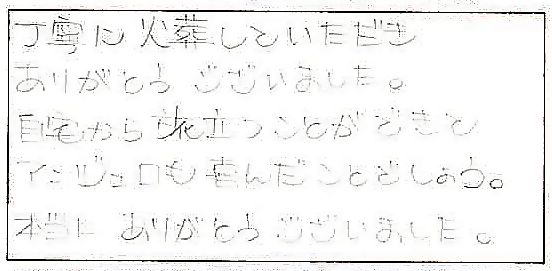 丁寧に火葬していただき
ありがとうございました。
自宅から旅立つことができて
アンジェロも喜んだことでしょう。
本当にありがとうございました。